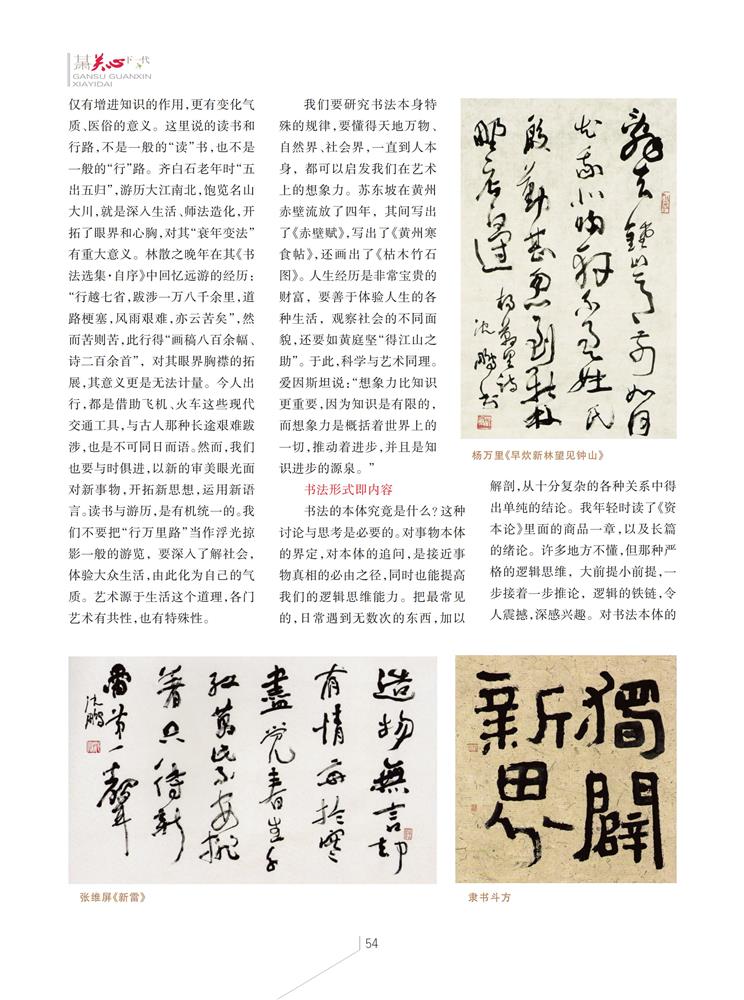 甘肃关心下一代
GANSU GUANXIN
XIAYIDAI
仅有增进知识的作用,更有变化气
质、医俗的意义。这里说的读书和
行路,不是一般的“读”书,也不是
一般的“行”路。齐白石老年时“五
出五归”,游历大江南北,饱览名山
大川,就是深入生活、师法造化,开
拓了眼界和心胸,对其“衰年变法”
有重大意义。林散之晚年在其《书
法选集·自序》中回忆远游的经历:
“行越七省,跋涉一万八千余里,道
路梗塞,风雨艰难,亦云苦矣”,然
而苦则苦,此行得“画稿八百余幅、
诗二百余首”,对其眼界胸襟的拓
展,其意义更是无法计量。今人出
行,都是借助飞机、火车这些现代
交通工具,与古人那种长途艰难跋
涉,也是不可同日而语。然而,我们
也要与时俱进,以新的审美眼光面
对新事物,开拓新思想,运用新语
言。读书与游历,是有机统一的。我
们不要把“行万里路”当作浮光掠
影一般的游览,要深入了解社会,
体验大众生活,由此化为自己的气
质。艺术源于生活这个道理,各门
艺术有共性,也有特殊性。
我们要研究书法本身特
殊的规律,要懂得天地万物、
自然界、社会界,一直到人本
身,都可以启发我们在艺术
上的想象力。苏东坡在黄州
赤壁流放了四年,其间写出
了《赤壁赋》,写出了《黄州寒
食帖》,还画出了《枯木竹石
图》。人生经历是非常宝贵的
财富,要善于体验人生的各
种生活,观察社会的不同面
貌,还要如黄庭坚“得江山之
助”。于此,科学与艺术同理。
爱因斯坦说:“想象力比知识
更重要,因为知识是有限的,
而想象力是概括着世界上的
一切,推动着进步,并且是知
识进步的源泉。”
书法形式即内容
书法的本体究竟是什么?这种
讨论与思考是必要的。对事物本体
的界定,对本体的追问,是接近事
物真相的必由之径,同时也能提高
我们的逻辑思维能力。把最常见
的,日常遇到无数次的东西,加以
辞去鍾山前如何
姓氏
殷勤甚忽到新林
野店邊
楊萬里詩
沈鵬书
杨万里《早炊新林望见钟山》
解剖,从十分复杂的各种关系中得
出单纯的结论。我年轻时读了《资
本论》里面的商品一章,以及长篇
的绪论。许多地方不懂,但那种严
格的逻辑思维,大前提小前提,一
步接着一步推论,逻辑的铁链,令
人震撼,深感兴趣。对书法本体的
造物無言却
有情每於寒
盡覺春生千
红萬紫安排
著只待新
雷第一聲
沈鵬
张维屏《新雷》
獨闢
新界
隶书斗方
54